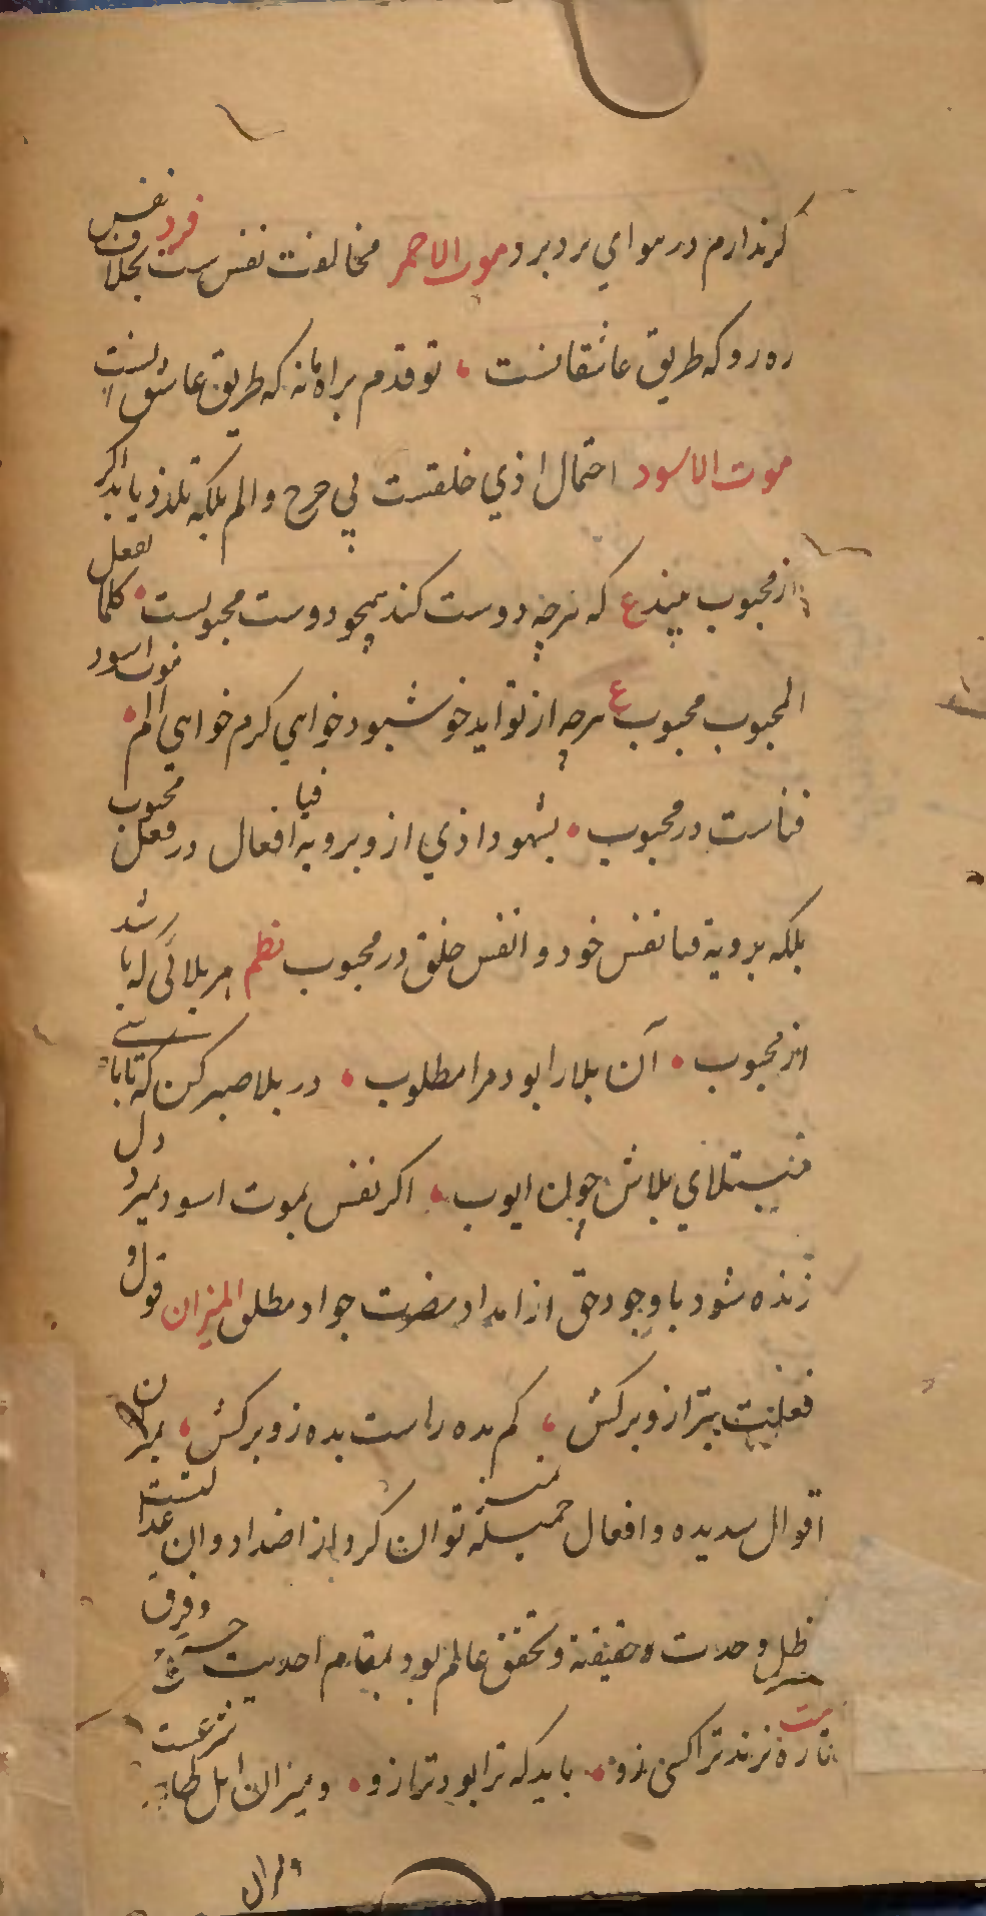 کر ندارم در هوای برد برد موت الاحمر مخالفت نفس ست فرد بخلاف نفس
ره رو که طریق عاشقانست ، تو قدم براه نه که طریق عاشق اینست
موت الاسود احتمال اذی خلقست بی حرج و الم بلکه تلذذ یابد اکر
از محبوب بیند ع که هرچه دوست کند همچو دوست محبوبست ۰ کلما یفعل
المحبوب محبوب ع هرچه از تو آید خوش بود خواهی کرم خواهی الم ۰ موت اسود
فناست در محبوب ۰ بشهود اذی ازو برویة فنا افعال در فعل محبوب
بلکه برویة فنا نفس خود و انفس خلق در محبوب نظم هر بلائی که باشد
از محبوب ۰ آن بلا را بود مرا مطلوب ۰ در بلا صبر کن که تا باشی
مبتلای بلاش چون ایوب ۰ اکر نفس بموت اسود میرد دل
زنده شود با وجود حق از امداد حضرت جواد مطلق المیزان قول و
فعلیت بترازو برکش ، کم مده راست بده زو برکش ، میزان
اقوال سدیده و افعال جمیله تمیز توان کرد از اضداد و آن عدالتست
ظل وحدت حقیقة و تحقق عالم بود بمقام احدیت جمع و فرق
تا ره نزند ترا کسی زو ۰ باید که ترا بود ترازو ۰ و میزان اهل ظاهر شرعست
و میزان